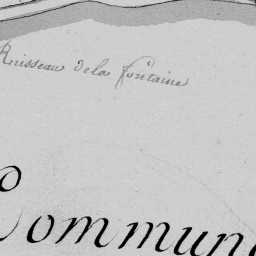 Ruisseau de la fontaine
Commun